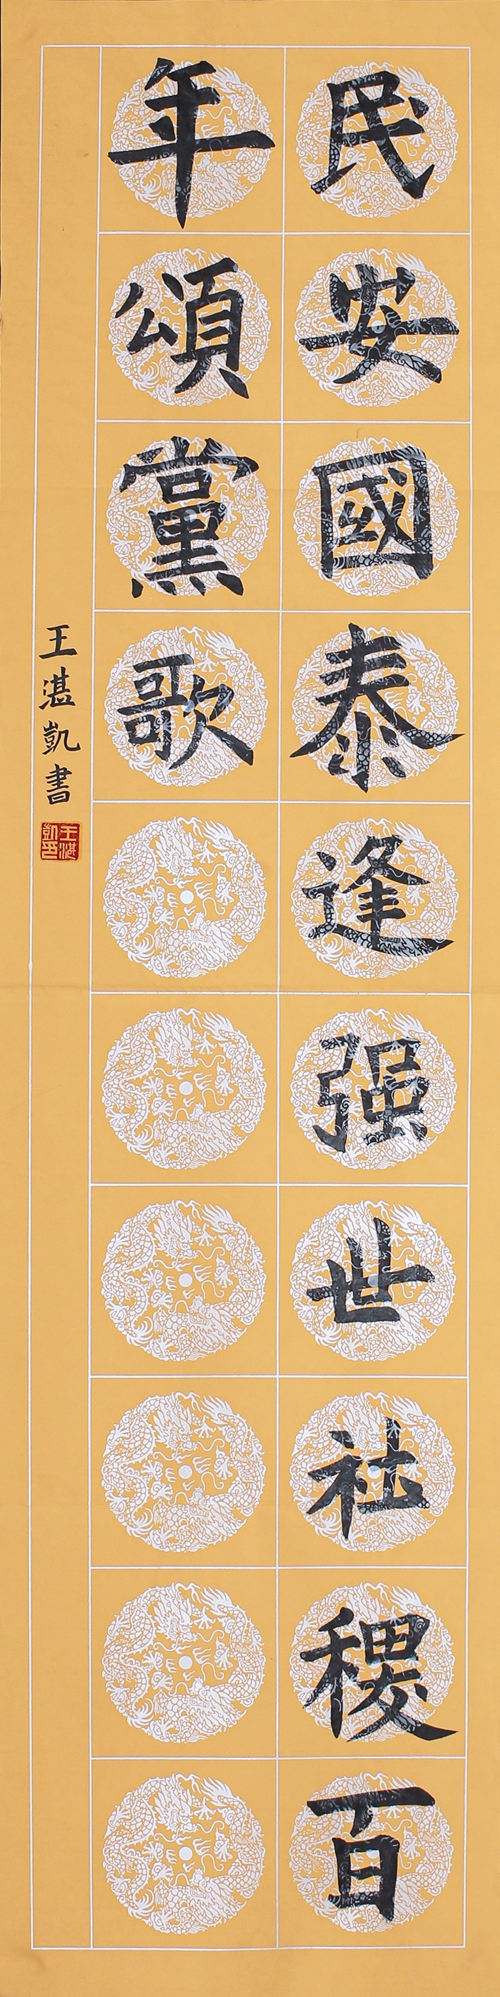 民安國泰逢强世社稷百
年頌黨歌
王湛凯書
王湛凯印